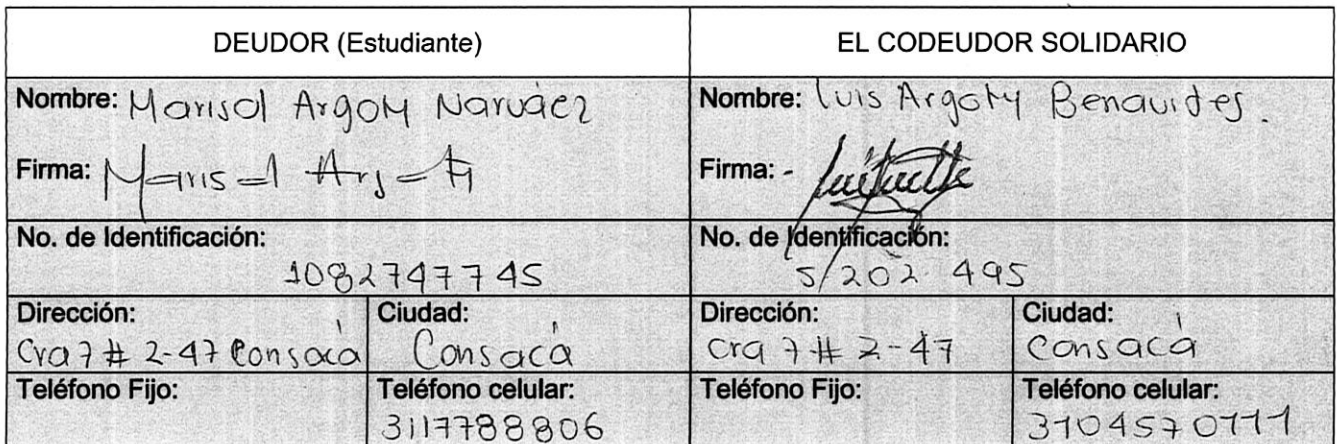 DEUDOR (Estudiante)
EL CODEUDOR SOLIDARIO
Nombre: Marisol Argoty Narváez
Nombre: Luis Argoty Benavides.
Firma: Marisol Argoty
Firma: -
No. de Identificación:
1082747745
No. de Identificación:
5/202 495
Dirección:
Cra 7 # 2-47 Consacá
Ciudad:
Consacá
Dirección:
Cra 7 # 2-47
Ciudad:
Consacá
Teléfono Fijo:
Teléfono celular:
3117788806
Teléfono Fijo:
Teléfono celular:
3104570111